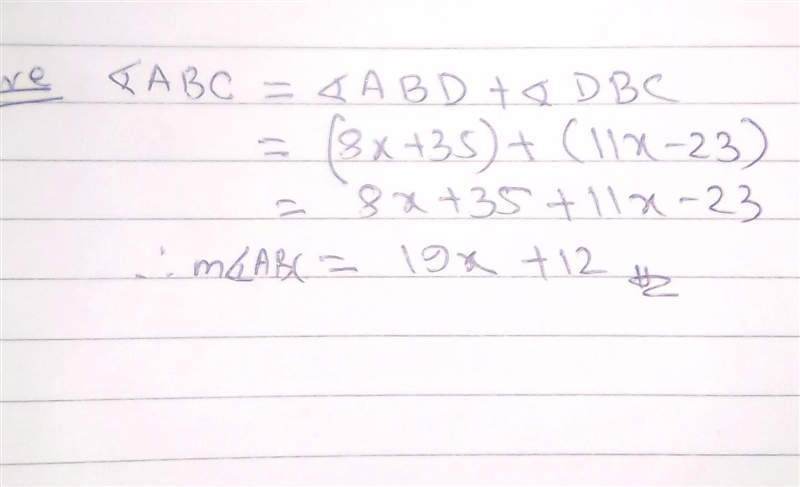 ∡ABC = ∡ABD + ∡DBC
= (8x+35) + (11x-23)
= 8x+35+11x-23
∴ m∡ABC = 19x + 12